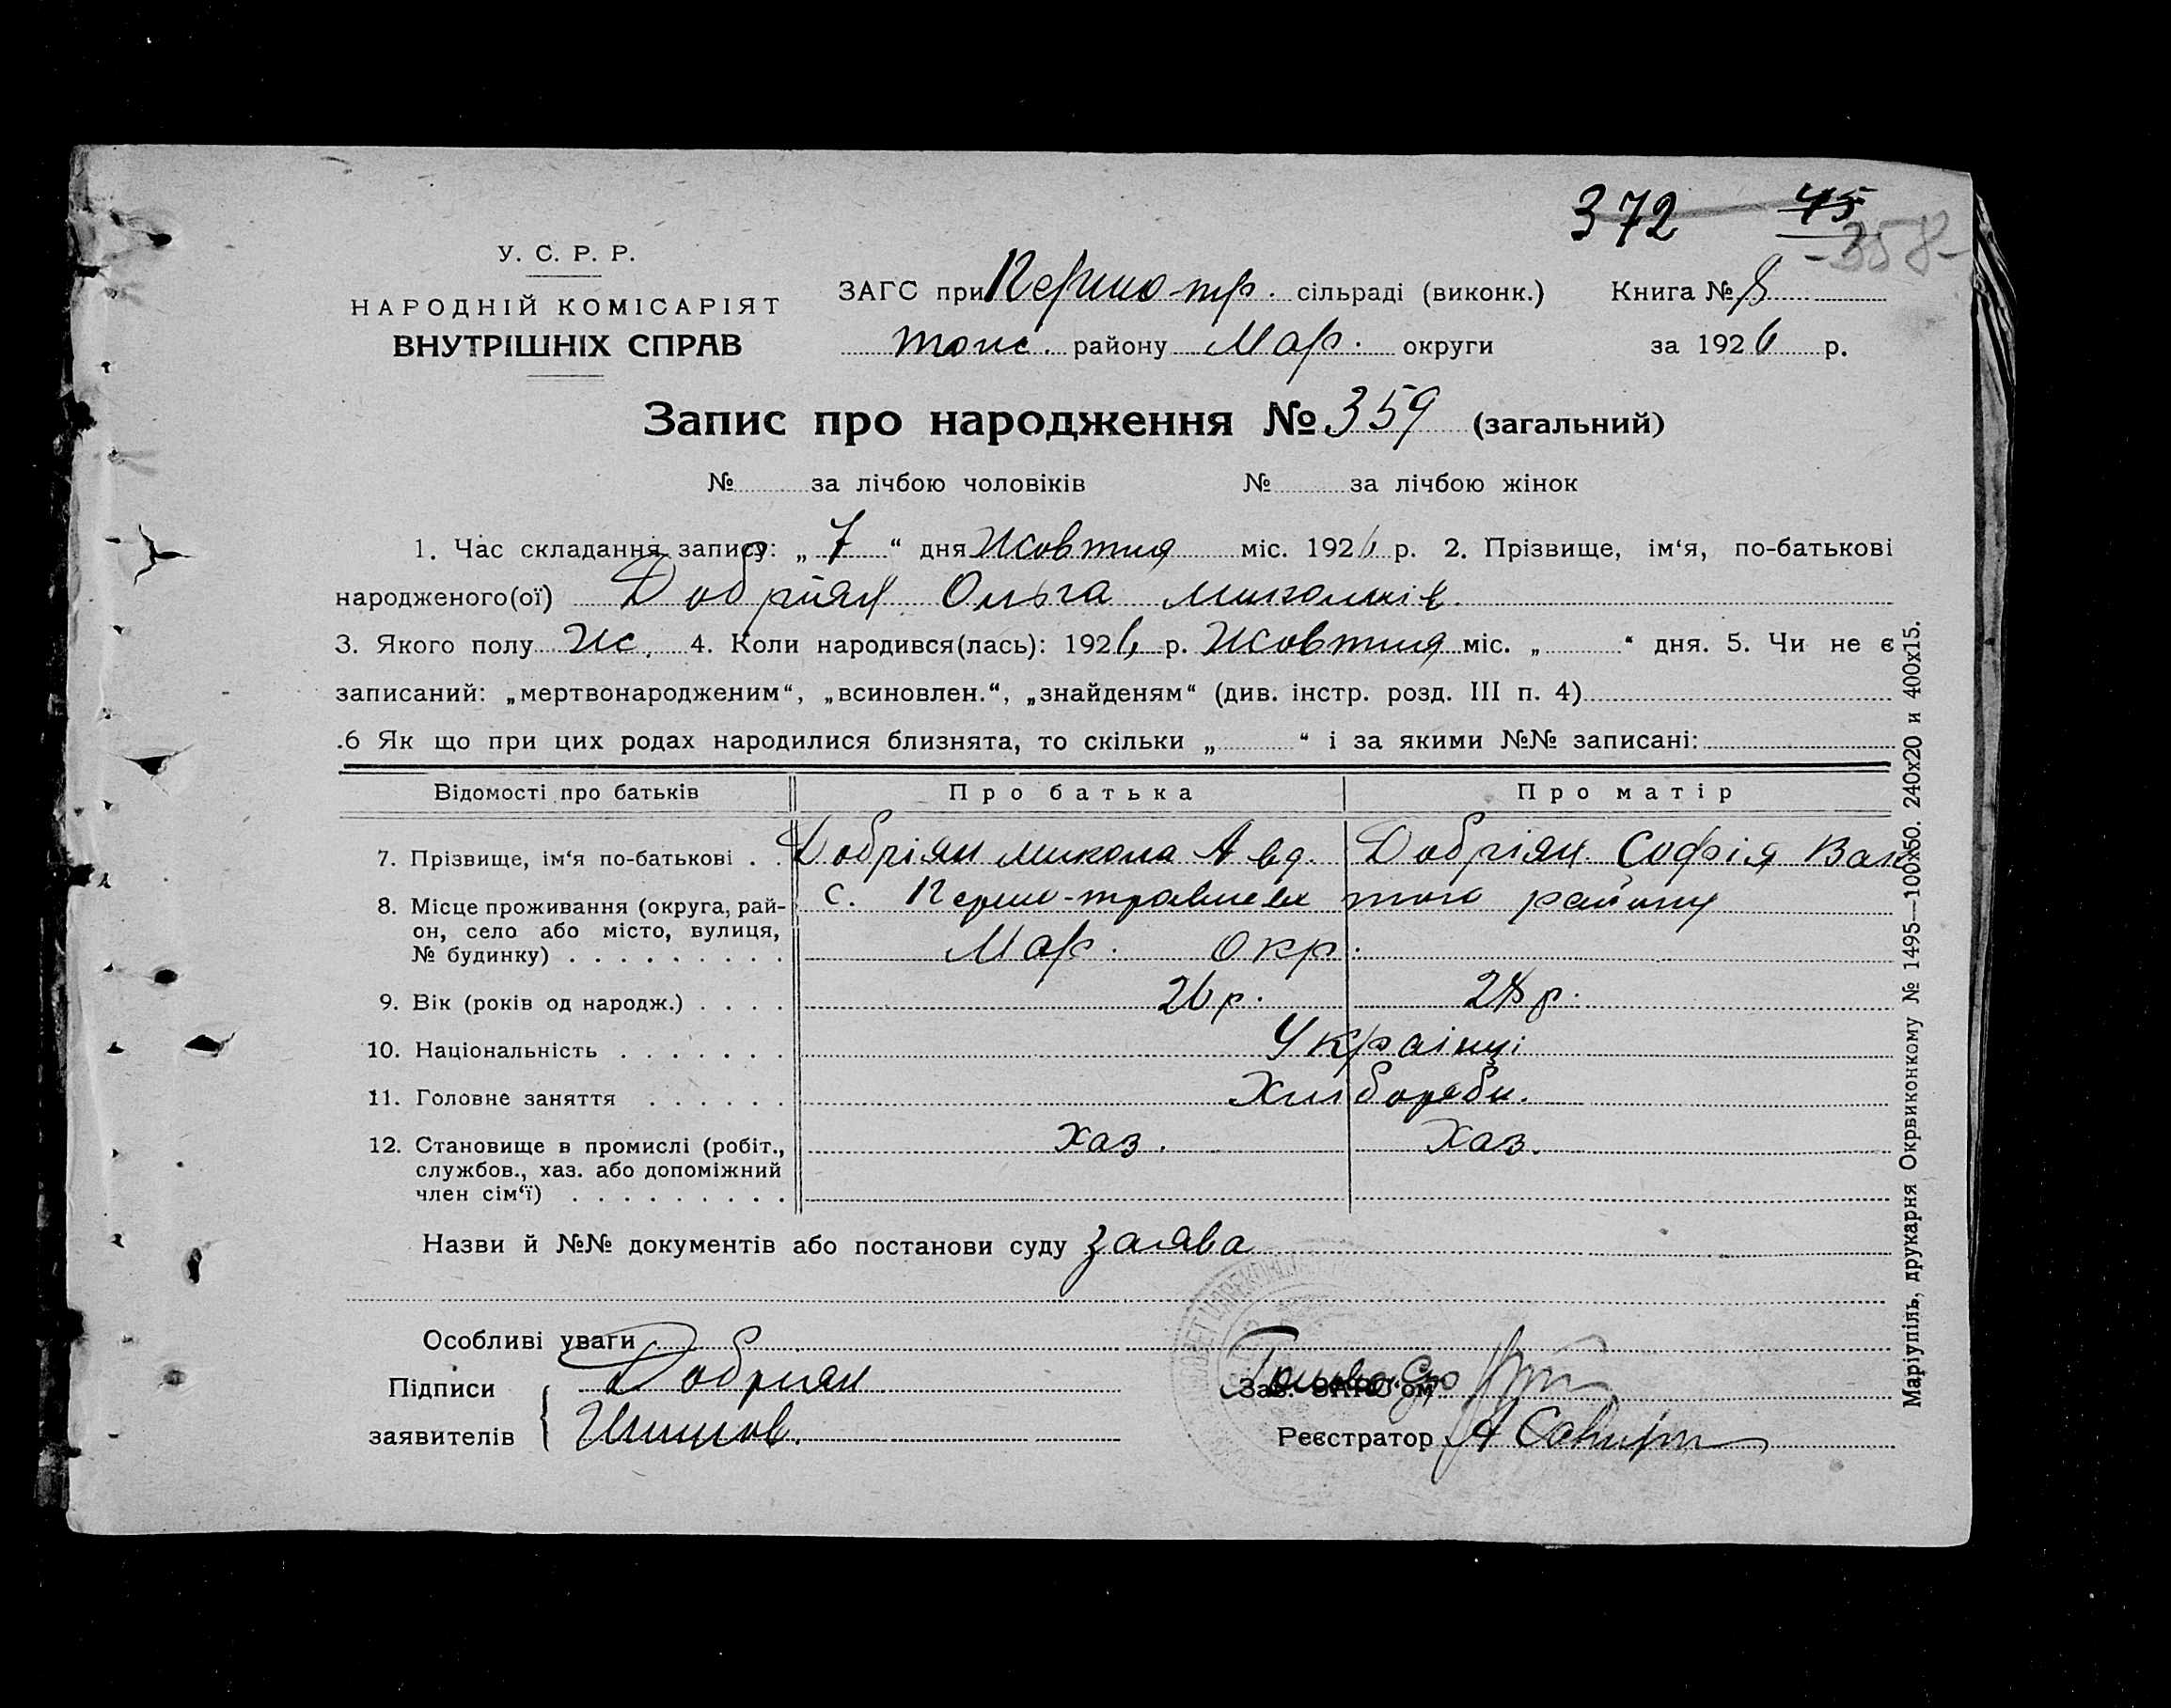 372 45
-358-
У. С. Р. Р.
НАРОДНІЙ КОМІСАРІЯТ
ВНУТРІШНІХ СПРАВ
ЗАГС при Першо-тр. сільраді (виконк.) Книга № 8
району Мар. округи за 1926 р.
Запис про народження № 359 (загальний)
№ за лічбою чоловіків № за лічбою жінок
1. Час складання запису: „ 7 “ дня Жовтня міс. 1926 р. 2. Прізвище, ім‘я, по-батькові
народженого(ої) Добріян Ольга
3. Якого полу Ж. 4. Коли народився(лась): 1926 р. Жовтня міс. „ “ дня. 5. Чи не є
записаний: „мертвонародженим“, „всиновлен.“, „знайденям“ (див. інстр. розд. III п. 4)
.6 Як що при цих родах народилися близнята, то скільки „ “ і за якими №№ записані:
Відомості про батьків Про батька Про матір
7. Прізвище, ім‘я по-батькові . . Добріян Микола Авд. Добріян Софія
8. Місце проживання (округа, рай- с. району
он, село або місто, вулиця,
№ будинку) . . . . . . . . . Мар. Окр.
9. Вік (років од народж.) . . . . 26 р. р.
10. Національність . . . . . . . Українці
11. Головне заняття . . . . . . Хлібороби.
12. Становище в промислі (робіт., хаз. хаз.
службов., хаз. або допоміжний
член сім‘ї) . . . . . . . . .
Назви й №№ документів або постанови суду заява
Особливі уваги
Підписи Добріян Зав. ЗАГС‘ом
заявителів Реєстратор
Маріупіль, друкарня Окрвиконкому № 1495—100х50. 240х20 и 400х15.